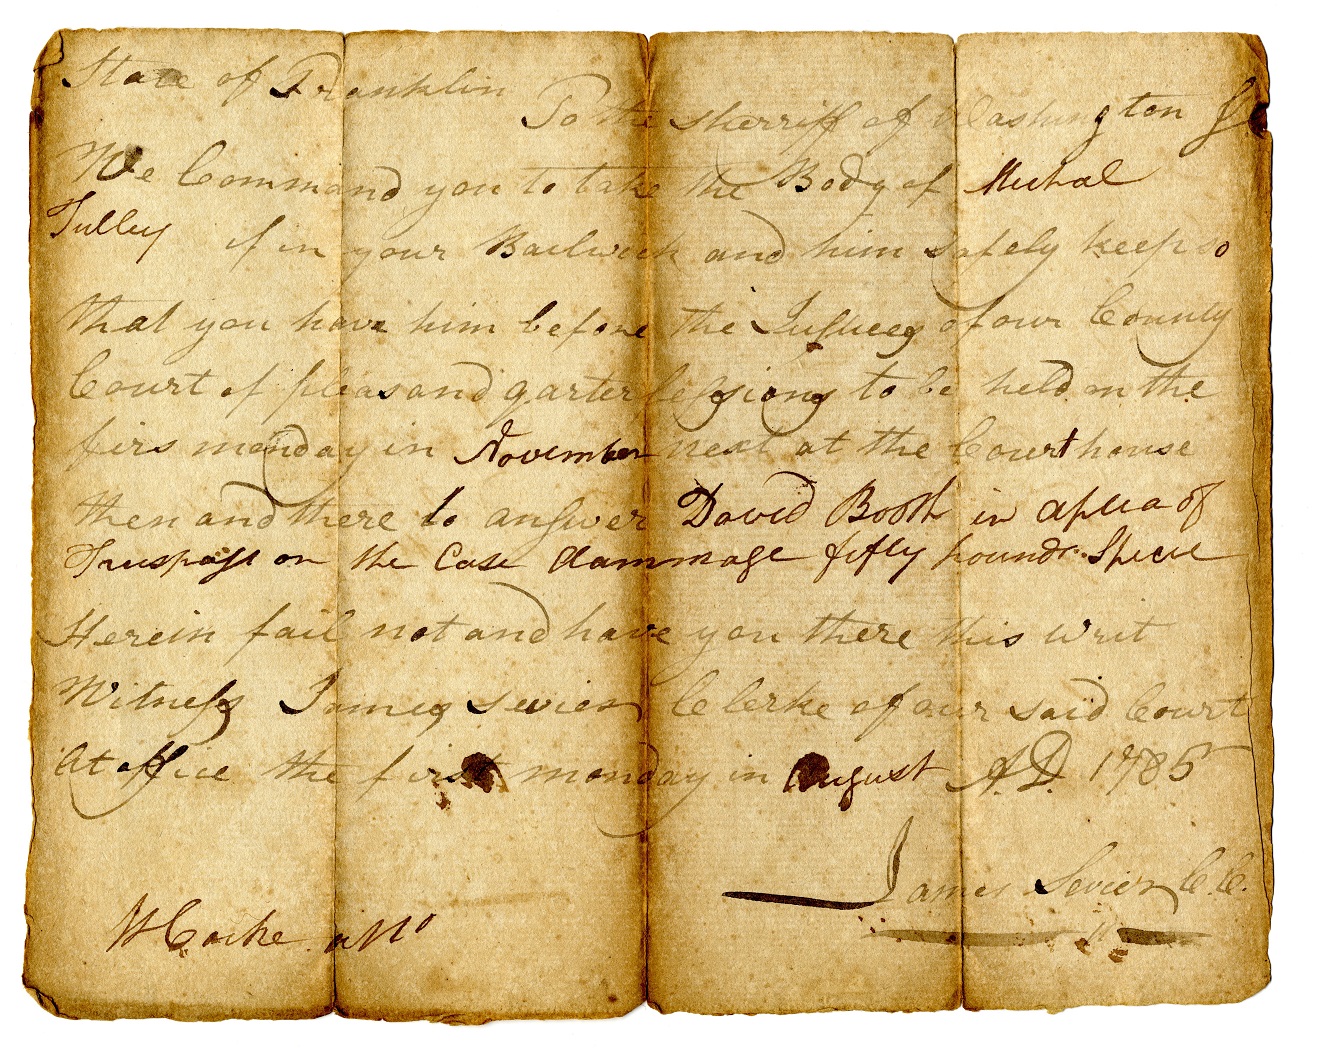 State of Franklin
To the sherriff of Washington
We Command you to take the Body of Michal
Tulley if in your Bailwick and him safely keep so
that you have him before the Justices of our County
Court of pleas and quarter sessions to be held on the
firs monday in November next at the Courthouse
then and there to answer David Booth in a plea of
Trespass on the Case dammage fifty pounds Specie
Herein fail not and have you there this writ
Witness James Sevier Clerke of our said Court
At office the first monday in August A.D. 1785
James Sevier C.C.
W Cocke atto